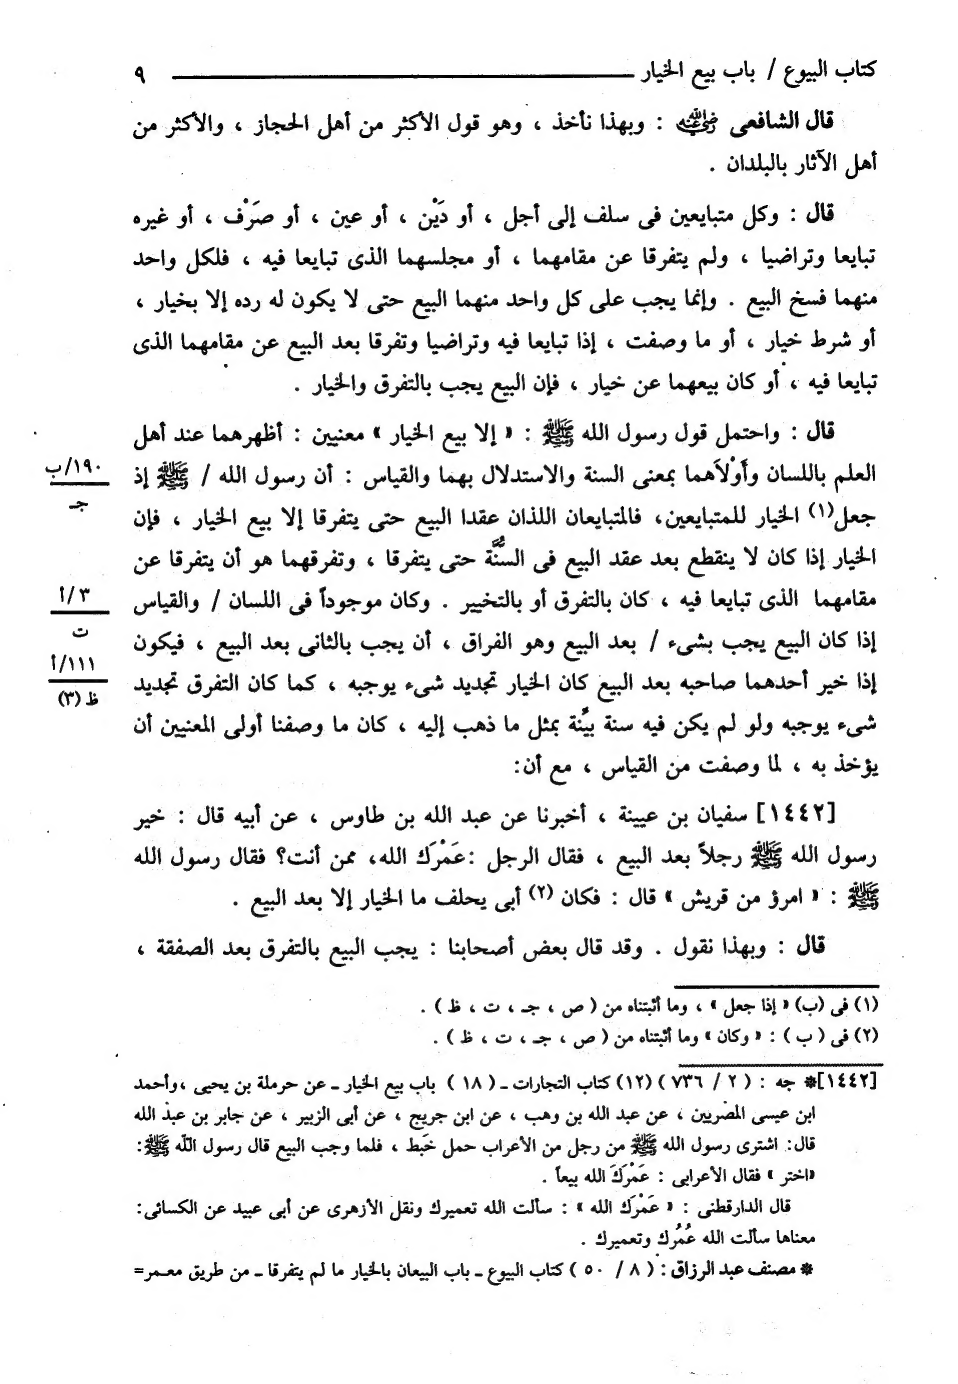 كتاب البيوع / باب بيع الخيار ـــــــــــــــــــــــــــ ٩
قال الشافعى رضي الله عنه : وبهذا نأخذ ، وهو قول الأكثر من أهل الحجاز ، والأكثر من
أهل الآثار بالبلدان .
قال : وكل متبايعين فى سلف إلى أجل ، أو دَيْن ، أو عين ، أو صَرْف ، أو غيره
تبايعا وتراضيا ، ولم يتفرقا عن مقامهما ، أو مجلسهما الذى تبايعا فيه ، فلكل واحد
منهما فسخ البيع . وإنما يجب على كل واحد منهما البيع حتى لا يكون له رده إلا بخيار ،
أو شرط خيار ، أو ما وصفت ، إذا تبايعا فيه وتراضيا وتفرقا بعد البيع عن مقامهما الذى
تبايعا فيه ، أو كان بيعهما عن خيار ، فإن البيع يجب بالتفرق والخيار .
قال : واحتمل قول رسول الله ﷺ : « إلا بيع الخيار » معنيين : أظهرهما عند أهل
العلم باللسان وأَوْلاَهما بمعنى السنة والاستدلال بهما والقياس : أن رسول الله / ﷺ إذ
١٩٠/ب
جـ
جعل(١) الخيار للمتبايعين، فالمتبايعان اللذان عقدا البيع حتى يتفرقا إلا بيع الخيار ، فإن
الخيار إذا كان لا ينقطع بعد عقد البيع فى السنَّة حتى يتفرقا ، وتفرقهما هو أن يتفرقا عن
مقامهما الذى تبايعا فيه ، كان بالتفرق أو بالتخيير . وكان موجوداً فى اللسان / والقياس
٣/أ
ت
إذا كان البيع يجب بشىء / بعد البيع وهو الفراق ، أن يجب بالثانى بعد البيع ، فيكون
١١١/أ
ظ (٣)
إذا خير أحدهما صاحبه بعد البيع كان الخيار تجديد شىء يوجبه ، كما كان التفرق تجديد
شىء يوجبه ولو لم يكن فيه سنة بيِّنة بمثل ما ذهب إليه ، كان ما وصفنا أولى المعنيين أن
يؤخذ به ، لما وصفت من القياس ، مع أن:
[١٤٤٢] سفيان بن عيينة ، أخبرنا عن عبد الله بن طاوس ، عن أبيه قال : خير
رسول الله ﷺ رجلاً بعد البيع ، فقال الرجل :عَمْرَك الله، ممن أنت؟ فقال رسول الله
ﷺ : « امرؤ من قريش » قال : فكان (٢) أبى يحلف ما الخيار إلا بعد البيع .
قال : وبهذا نقول . وقد قال بعض أصحابنا : يجب البيع بالتفرق بعد الصفقة ،
(١) فى (ب) « إذا جعل » ، وما أثبتناه من ( ص ، جـ ، ت ، ظ ) .
(٢) فى ( ب ) : « وكان » وما أثبتناه من ( ص ، جـ ، ت ، ظ ) .
[١٤٤٢]* جه : ( ٢ / ٧٣٦ ) (١٢) كتاب التجارات ـ ( ١٨ ) باب بيع الخيار ـ عن حرملة بن يحيى ،وأحمد
ابن عيسى المصريين ، عن عبد الله بن وهب ، عن ابن جريج ، عن أبى الزبير ، عن جابر بن عبد الله
قال: اشترى رسول الله ﷺ من رجل من الأعراب حمل خَبَط ، فلما وجب البيع قال رسول الله ﷺ:
«اختر » فقال الأعرابى : عَمْرَكَ الله بيعاً .
قال الدارقطنى : « عَمْرَك الله » : سألت الله تعميرك ونقل الأزهرى عن أبى عبيد عن الكسائى:
معناها سألت الله عُمُرك وتعميرك .
* مصنف عبد الرزاق : ( ٨ / ٥٠ ) كتاب البيوع ـ باب البيعان بالخيار ما لم يتفرقا ـ من طريق معمر=